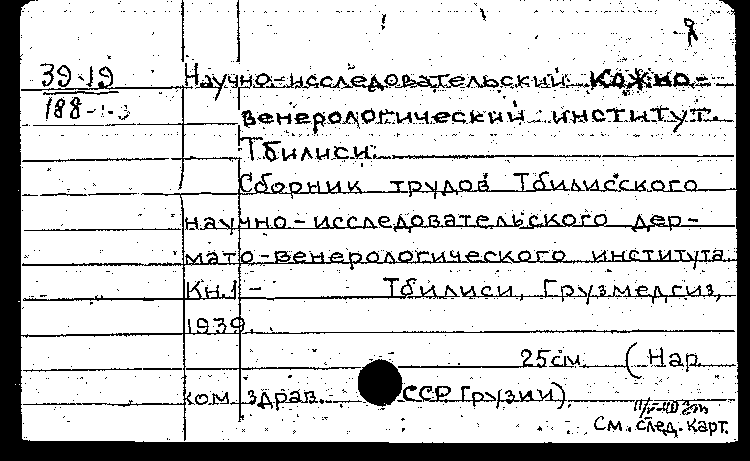 39-19
188-1-3
Научно-исследовательский кожно-
венерологический институт.
Тбилиси.
Сборник трудов Тбилисского
научно-исследовательского дер-
мато-венерологического института
Кн.1 - Тбилиси, Грузмедгиз,
1939.
25см. (Нар
ком здрав. ССР Грузии).
См. след. карт.